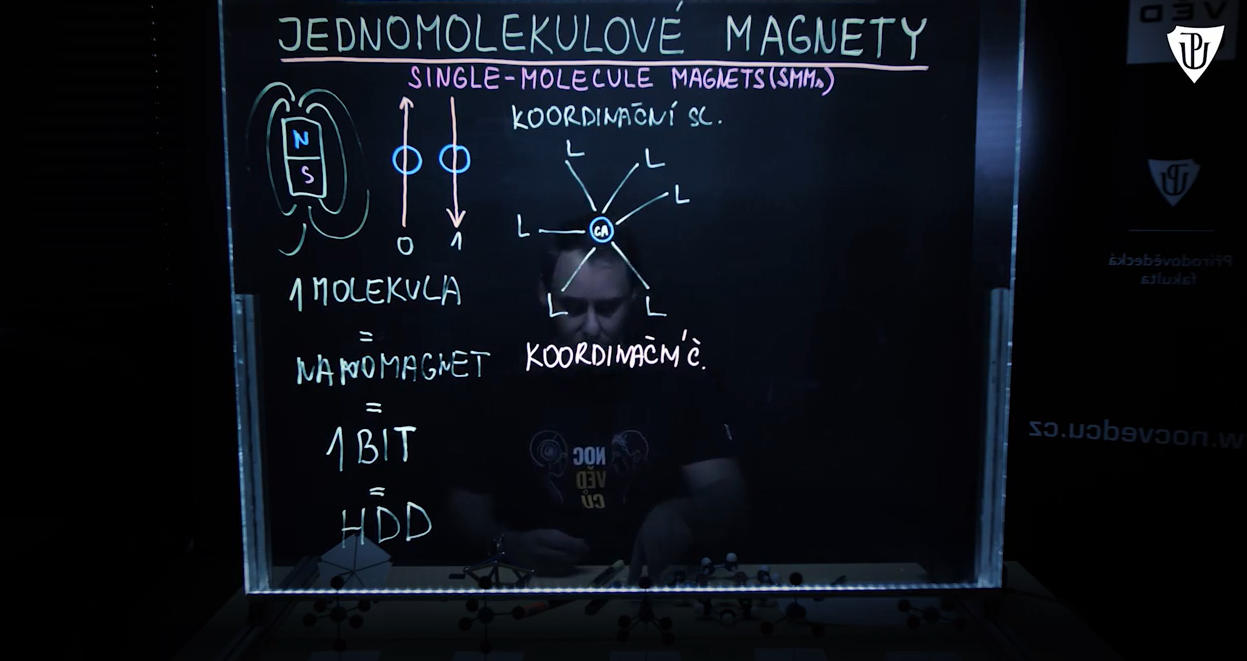 JEDNOMOLEKULOVÉ MAGNETY
SINGLE-MOLECULE MAGNETS (SMMs)
N
S
0
1
1 MOLEKULA
=
NANOMAGNET
=
1 BIT
=
HDD
KOORDINAČNÍ SL.
L
L
L
L
CA
L
L
KOORDINAČNÍ Č.
NOC
VĚD
CŮ
VĚD
UP
UP
Přírodovědecká
fakulta
w.nocvedcu.cz